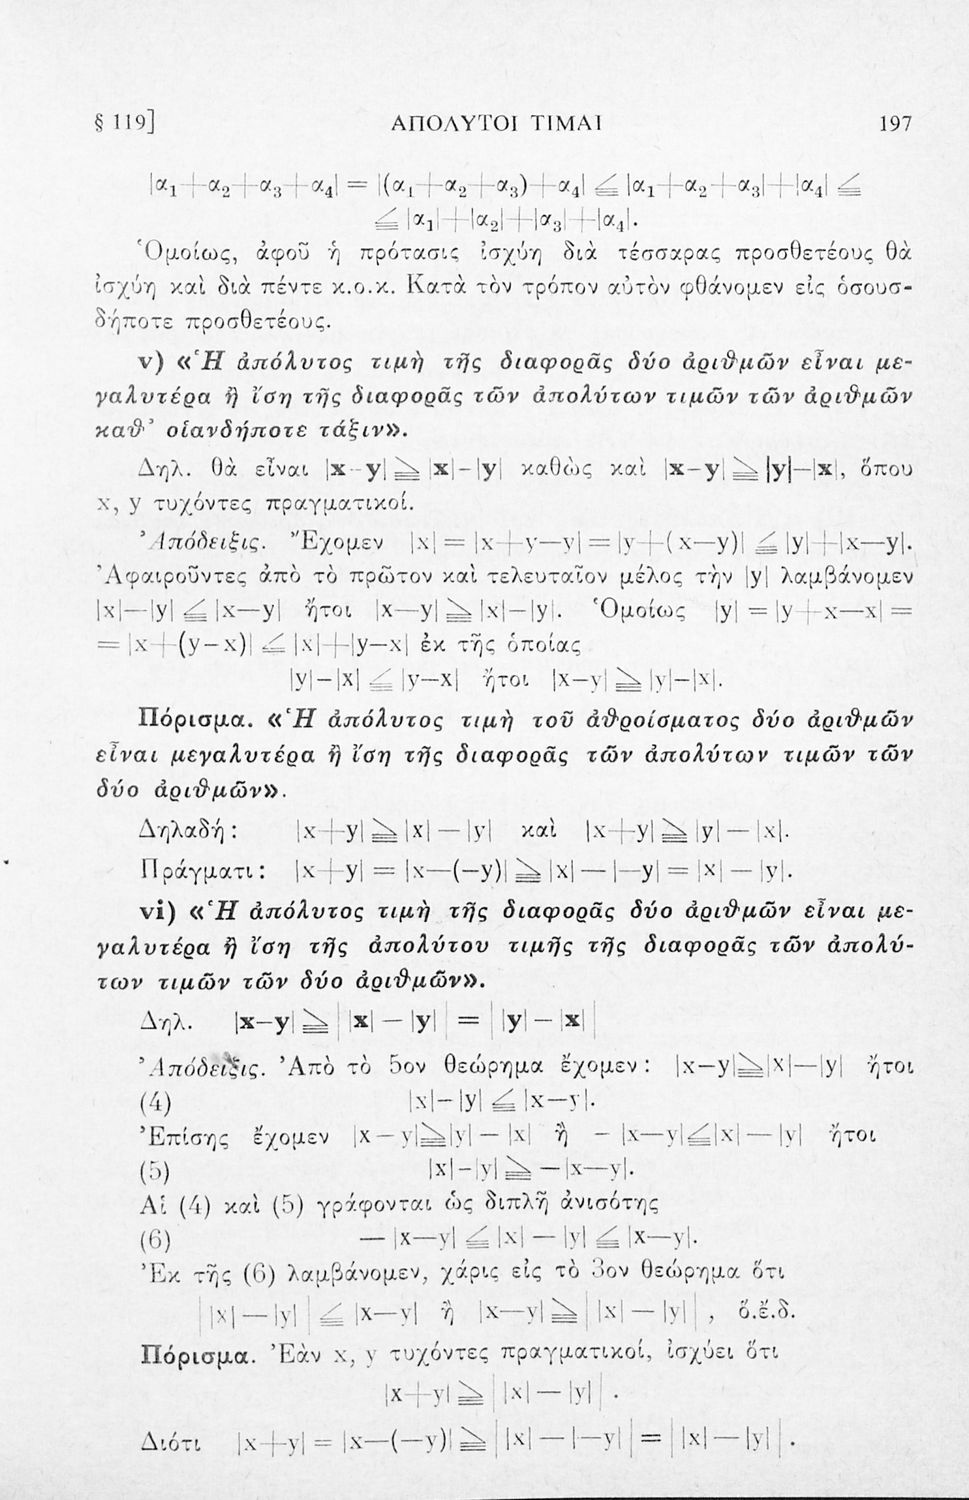 § 119] ΑΠΟΛΥΤΟΙ ΤΙΜΑΙ 197
|α₁+α₂+α₃+α₄| = |(α₁+α₂+α₃)+α₄| ≦ |α₁+α₂+α₃|+|α₄| ≦
≦ |α₁|+|α₂|+|α₃|+|α₄|.
Ὁμοίως, ἀφοῦ ἡ πρότασις ἰσχύη διὰ τέσσαρας προσθετέους θὰ
ἰσχύη καὶ διὰ πέντε κ.ο.κ. Κατὰ τὸν τρόπον αὐτὸν φθάνομεν εἰς ὁσουσ-
δήποτε προσθετέους.
v) «Ἡ ἀπόλυτος τιμὴ τῆς διαφορᾶς δύο ἀριθμῶν εἶναι με-
γαλυτέρα ἢ ἴση τῆς διαφορᾶς τῶν ἀπολύτων τιμῶν τῶν ἀριθμῶν
καθ’ οἱανδήποτε τάξιν».
Δηλ. θὰ εἶναι |x-y| ≧ |x|-|y| καθὼς καὶ |x-y| ≧ |y|—|x|, ὅπου
x, y τυχόντες πραγματικοί.
Ἀπόδειξις. Ἔχομεν |x| = |x+y—y| = |y+(x—y)| ≦ |y|+|x—y|.
Ἀφαιροῦντες ἀπὸ τὸ πρῶτον καὶ τελευταῖον μέλος τὴν |y| λαμβάνομεν
|x|—|y| ≦ |x—y| ἤτοι |x—y| ≧ |x|-|y|. Ὁμοίως |y| = |y+x—x| =
= |x+(y-x)| ≦ |x|+|y—x| ἐκ τῆς ὁποίας
|y|-|x| ≦ |y—x| ἤτοι |x—y| ≧ |y|-|x|.
Πόρισμα. «Ἡ ἀπόλυτος τιμὴ τοῦ ἀθροίσματος δύο ἀριθμῶν
εἶναι μεγαλυτέρα ἢ ἴση τῆς διαφορᾶς τῶν ἀπολύτων τιμῶν τῶν
δύο ἀριθμῶν».
Δηλαδή: |x+y| ≧ |x| — |y| καὶ |x+y| ≧ |y| — |x|.
Πράγματι: |x+y| = |x—(—y)| ≧ |x| — |—y| = |x| — |y|.
vi) «Ἡ ἀπόλυτος τιμὴ τῆς διαφορᾶς δύο ἀριθμῶν εἶναι με-
γαλυτέρα ἢ ἴση τῆς ἀπολύτου τιμῆς τῆς διαφορᾶς τῶν ἀπολύ-
των τιμῶν τῶν δύο ἀριθμῶν».
Δηλ. |x—y| ≧ | |x| — |y| | = | |y| — |x| |
Ἀπόδειξις. Ἀπὸ τὸ 5ον θεώρημα ἔχομεν: |x—y|≧|x|—|y| ἤτοι
(4) |x|-|y| ≦ |x—y|.
Ἐπίσης ἔχομεν |x — y|≧|y| — |x| ἢ - |x—y|≦|x| — |y| ἤτοι
(5) |x|-|y| ≧ —|x—y|.
Αἱ (4) καὶ (5) γράφονται ὡς διπλῆ ἀνισότης
(6) — |x—y| ≦ |x| — |y| ≦ |x—y|.
Ἐκ τῆς (6) λαμβάνομεν, χάρις εἰς τὸ 3ον θεώρημα ὅτι
| |x| — |y| | ≦ |x—y| ἢ |x—y| ≧ | |x| — |y| | , ὅ.ἔ.δ.
Πόρισμα. Ἐὰν x, y τυχόντες πραγματικοί, ἰσχύει ὅτι
|x+y| ≧ | |x| — |y| | .
Διότι |x+y| = |x—(—y)| ≧ | |x| — |—y| | = | |x| — |y| | .